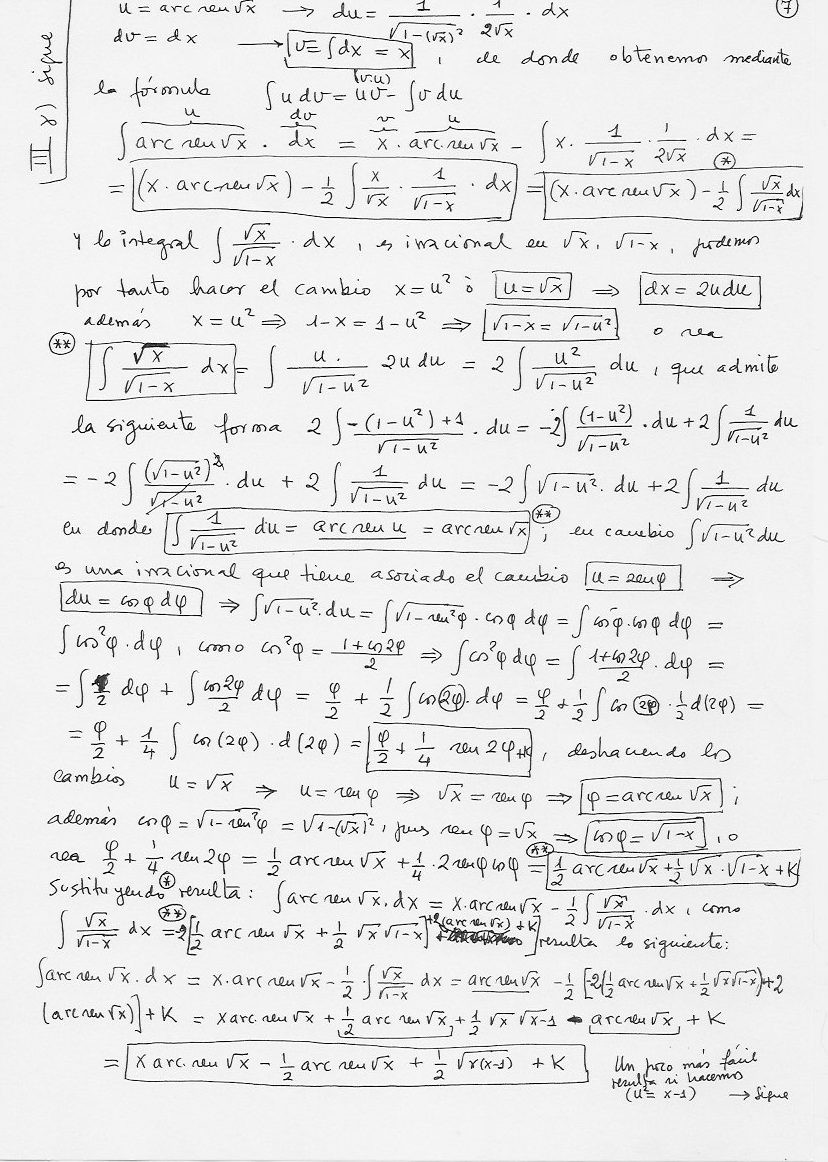 u = arc sen √x → du = 1/√(1-(√x)²) · 1/(2√x) · dx
⑦
III γ) sigue
dv = dx → v = ∫dx = x , de donde obtenemos mediante
la fórmula ∫u dv = uv - ∫v du
(v·u)
u dv v u
∫ arc sen √x · dx = x · arc sen √x - ∫ x · 1/√(1-x) · 1/(2√x) · dx =
= (x · arc sen √x) - 1/2 ∫ x/√x · 1/√(1-x) · dx = (*) (x · arc sen √x) - 1/2 ∫ √x/√(1-x) dx
y la integral ∫ √x/√(1-x) · dx , es irracional en √x, √(1-x), podemos
por tanto hacer el cambio x = u² ó u = √x ⇒ dx = 2u du
además x = u² ⇒ 1-x = 1-u² ⇒ √(1-x) = √(1-u²) o sea
(**) ∫ √x/√(1-x) dx = ∫ u·/√(1-u²) 2u du = 2 ∫ u²/√(1-u²) du , que admite
la siguiente forma 2 ∫ (-(1-u²)+1)/√(1-u²) · du = -2∫ (1-u²)/√(1-u²) · du + 2 ∫ 1/√(1-u²) du
= -2 ∫ (√(1-u²))²/√(1-u²) · du + 2 ∫ 1/√(1-u²) du = -2 ∫ √(1-u²) · du + 2 ∫ 1/√(1-u²) du
en donde ∫ 1/√(1-u²) du = arc sen u = arc sen √x (**) ; en cambio ∫ √(1-u²) du
es una irracional que tiene asociado el cambio u = sen φ ⇒
du = cos φ dφ ⇒ ∫ √(1-u²) · du = ∫ √(1-sen²φ) · cos φ dφ = ∫ cos φ · cos φ dφ =
∫ cos²φ · dφ , como cos²φ = (1+cos 2φ)/2 ⇒ ∫ cos²φ dφ = ∫ (1+cos 2φ)/2 · dφ =
= ∫ 1/2 dφ + ∫ cos 2φ/2 dφ = φ/2 + 1/2 ∫ cos 2φ · dφ = φ/2 + 1/2 ∫ cos 2φ · 1/2 d(2φ) =
= φ/2 + 1/4 ∫ cos (2φ) · d(2φ) = φ/2 + 1/4 sen 2φ + K , deshaciendo los
cambios u = √x ⇒ u = sen φ ⇒ √x = sen φ ⇒ φ = arc sen √x ;
además cos φ = √(1-sen²φ) = √(1-(√x)²), pues sen φ = √x ⇒ cos φ = √(1-x) , o
sea φ/2 + 1/4 sen 2φ = 1/2 arc sen √x + 1/4 · 2 sen φ cos φ (**) = 1/2 arc sen √x + 1/2 √x · √(1-x) + K
Sustituyendo (*) resulta: ∫ arc sen √x · dx = x · arc sen √x - 1/2 ∫ √x/√(1-x) · dx , como
∫ √x/√(1-x) dx (**) = -2[1/2 arc sen √x + 1/2 √x √(1-x)] +2 (arc sen √x) + K] resulta lo siguiente:
∫ arc sen √x · dx = x · arc sen √x - 1/2 · ∫ √x/√(1-x) dx = arc sen √x - 1/2 [-2(1/2 arc sen √x + 1/2 √x √(1-x)) + 2
(arc sen √x)] + K = x arc · sen √x + 1/2 arc sen √x + 1/2 √x √(x-1) - arc sen √x + K
= x arc. sen √x - 1/2 arc sen √x + 1/2 √(x(x-1)) + K
Un poco más fácil
resulta si hacemos
(u² = x-1) → Sigue